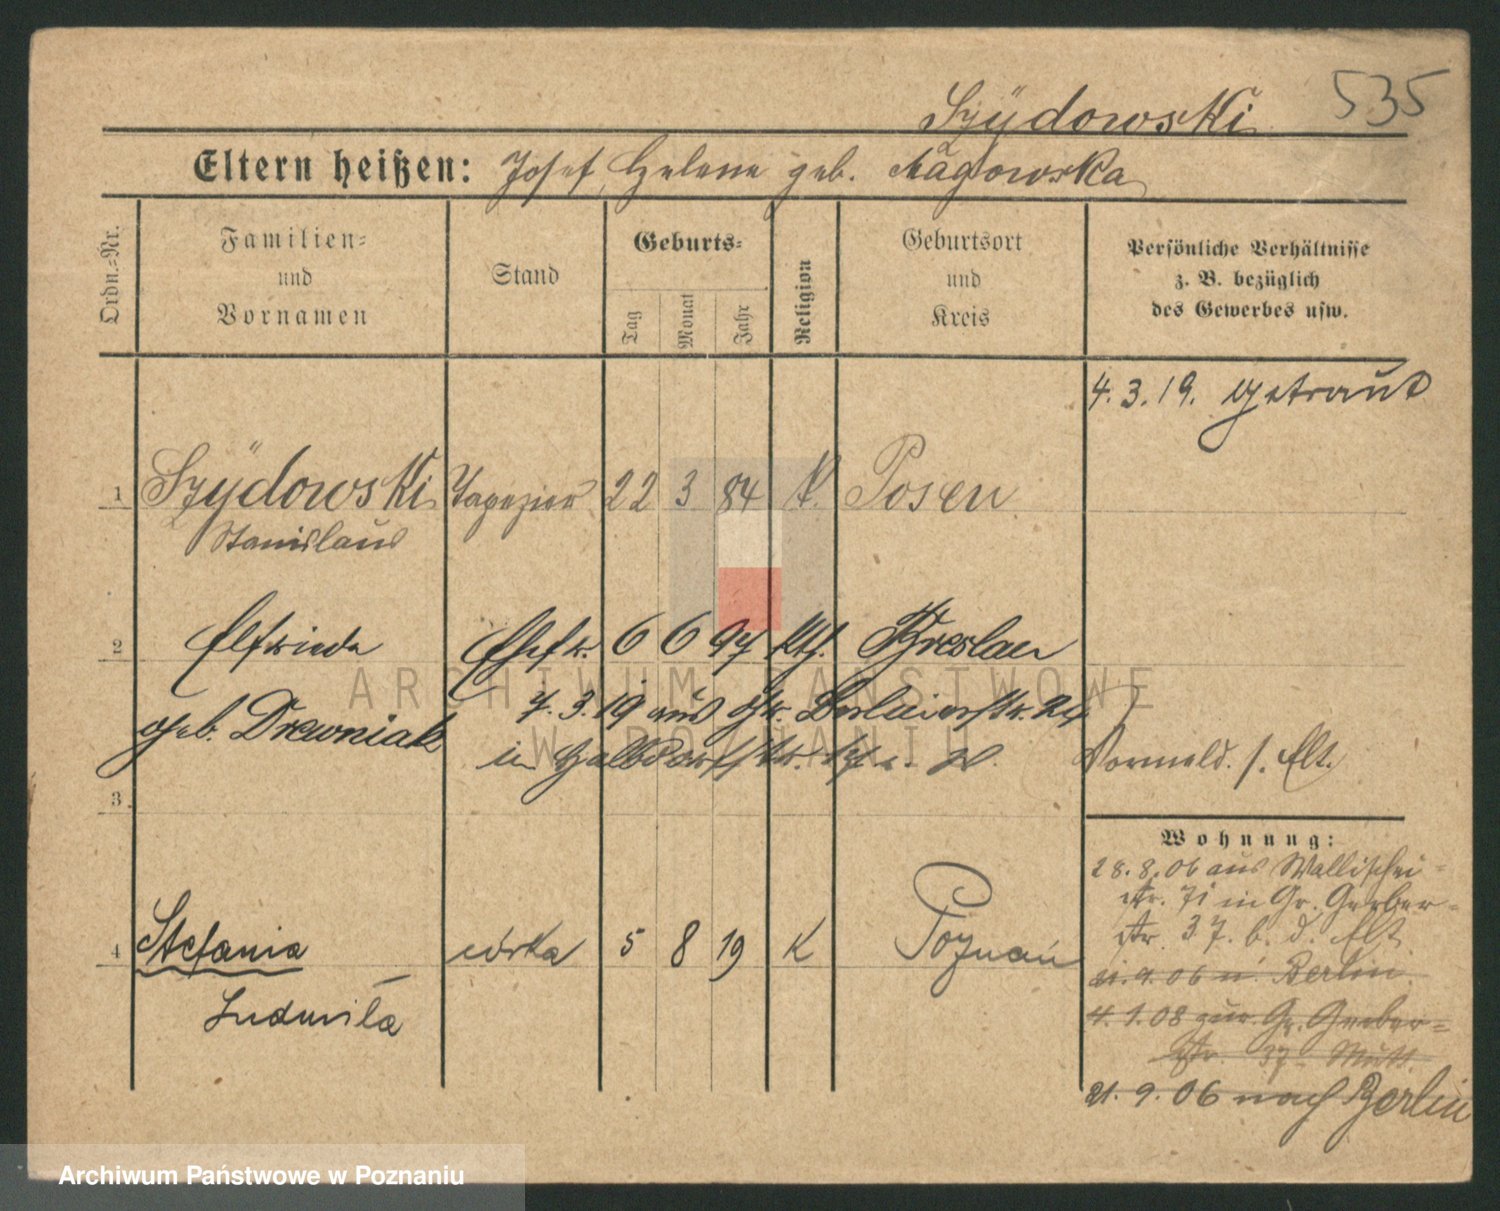 535
Szÿdowski
Eltern heißen: Josef, Helene geb. Nagowska
Ordn.-Nr.
Familien-
und
Vornamen
Stand
Geburts-
Tag
Monat
Jahr
Religion
Geburtsort
und
Kreis
Persönliche Verhältnisse
z. B. bezüglich
des Gewerbes usw.
4. 3. 19. getraut
1 Szÿdowski Tapezier 22 3 84 K. Posen
Stanislaus
2 Elfriede Ehefr. 6 6 97 kth. Breslau
geb. Drewniak
7. 3. 19 aus Gr. Berlinerstr. 24
in Halbdorfstr.
Vormeld. s. Elt.
3.
Wohnung:
28. 8. 06 aus Wallischei-
str. 71 in Gr. Gerber-
str. 37. b. d. Elt
21. 9. 06 n. Berlin.
4. 1. 08 zur. Gr. Gerber-
str. 37 Mutt.
21. 9. 06 nach Berlin
4 Stefania córka 5 8 19 K Poznań
Ludmiła
ARCHIWUM PAŃSTWOWE
W POZNANIU
Archiwum Państwowe w Poznaniu